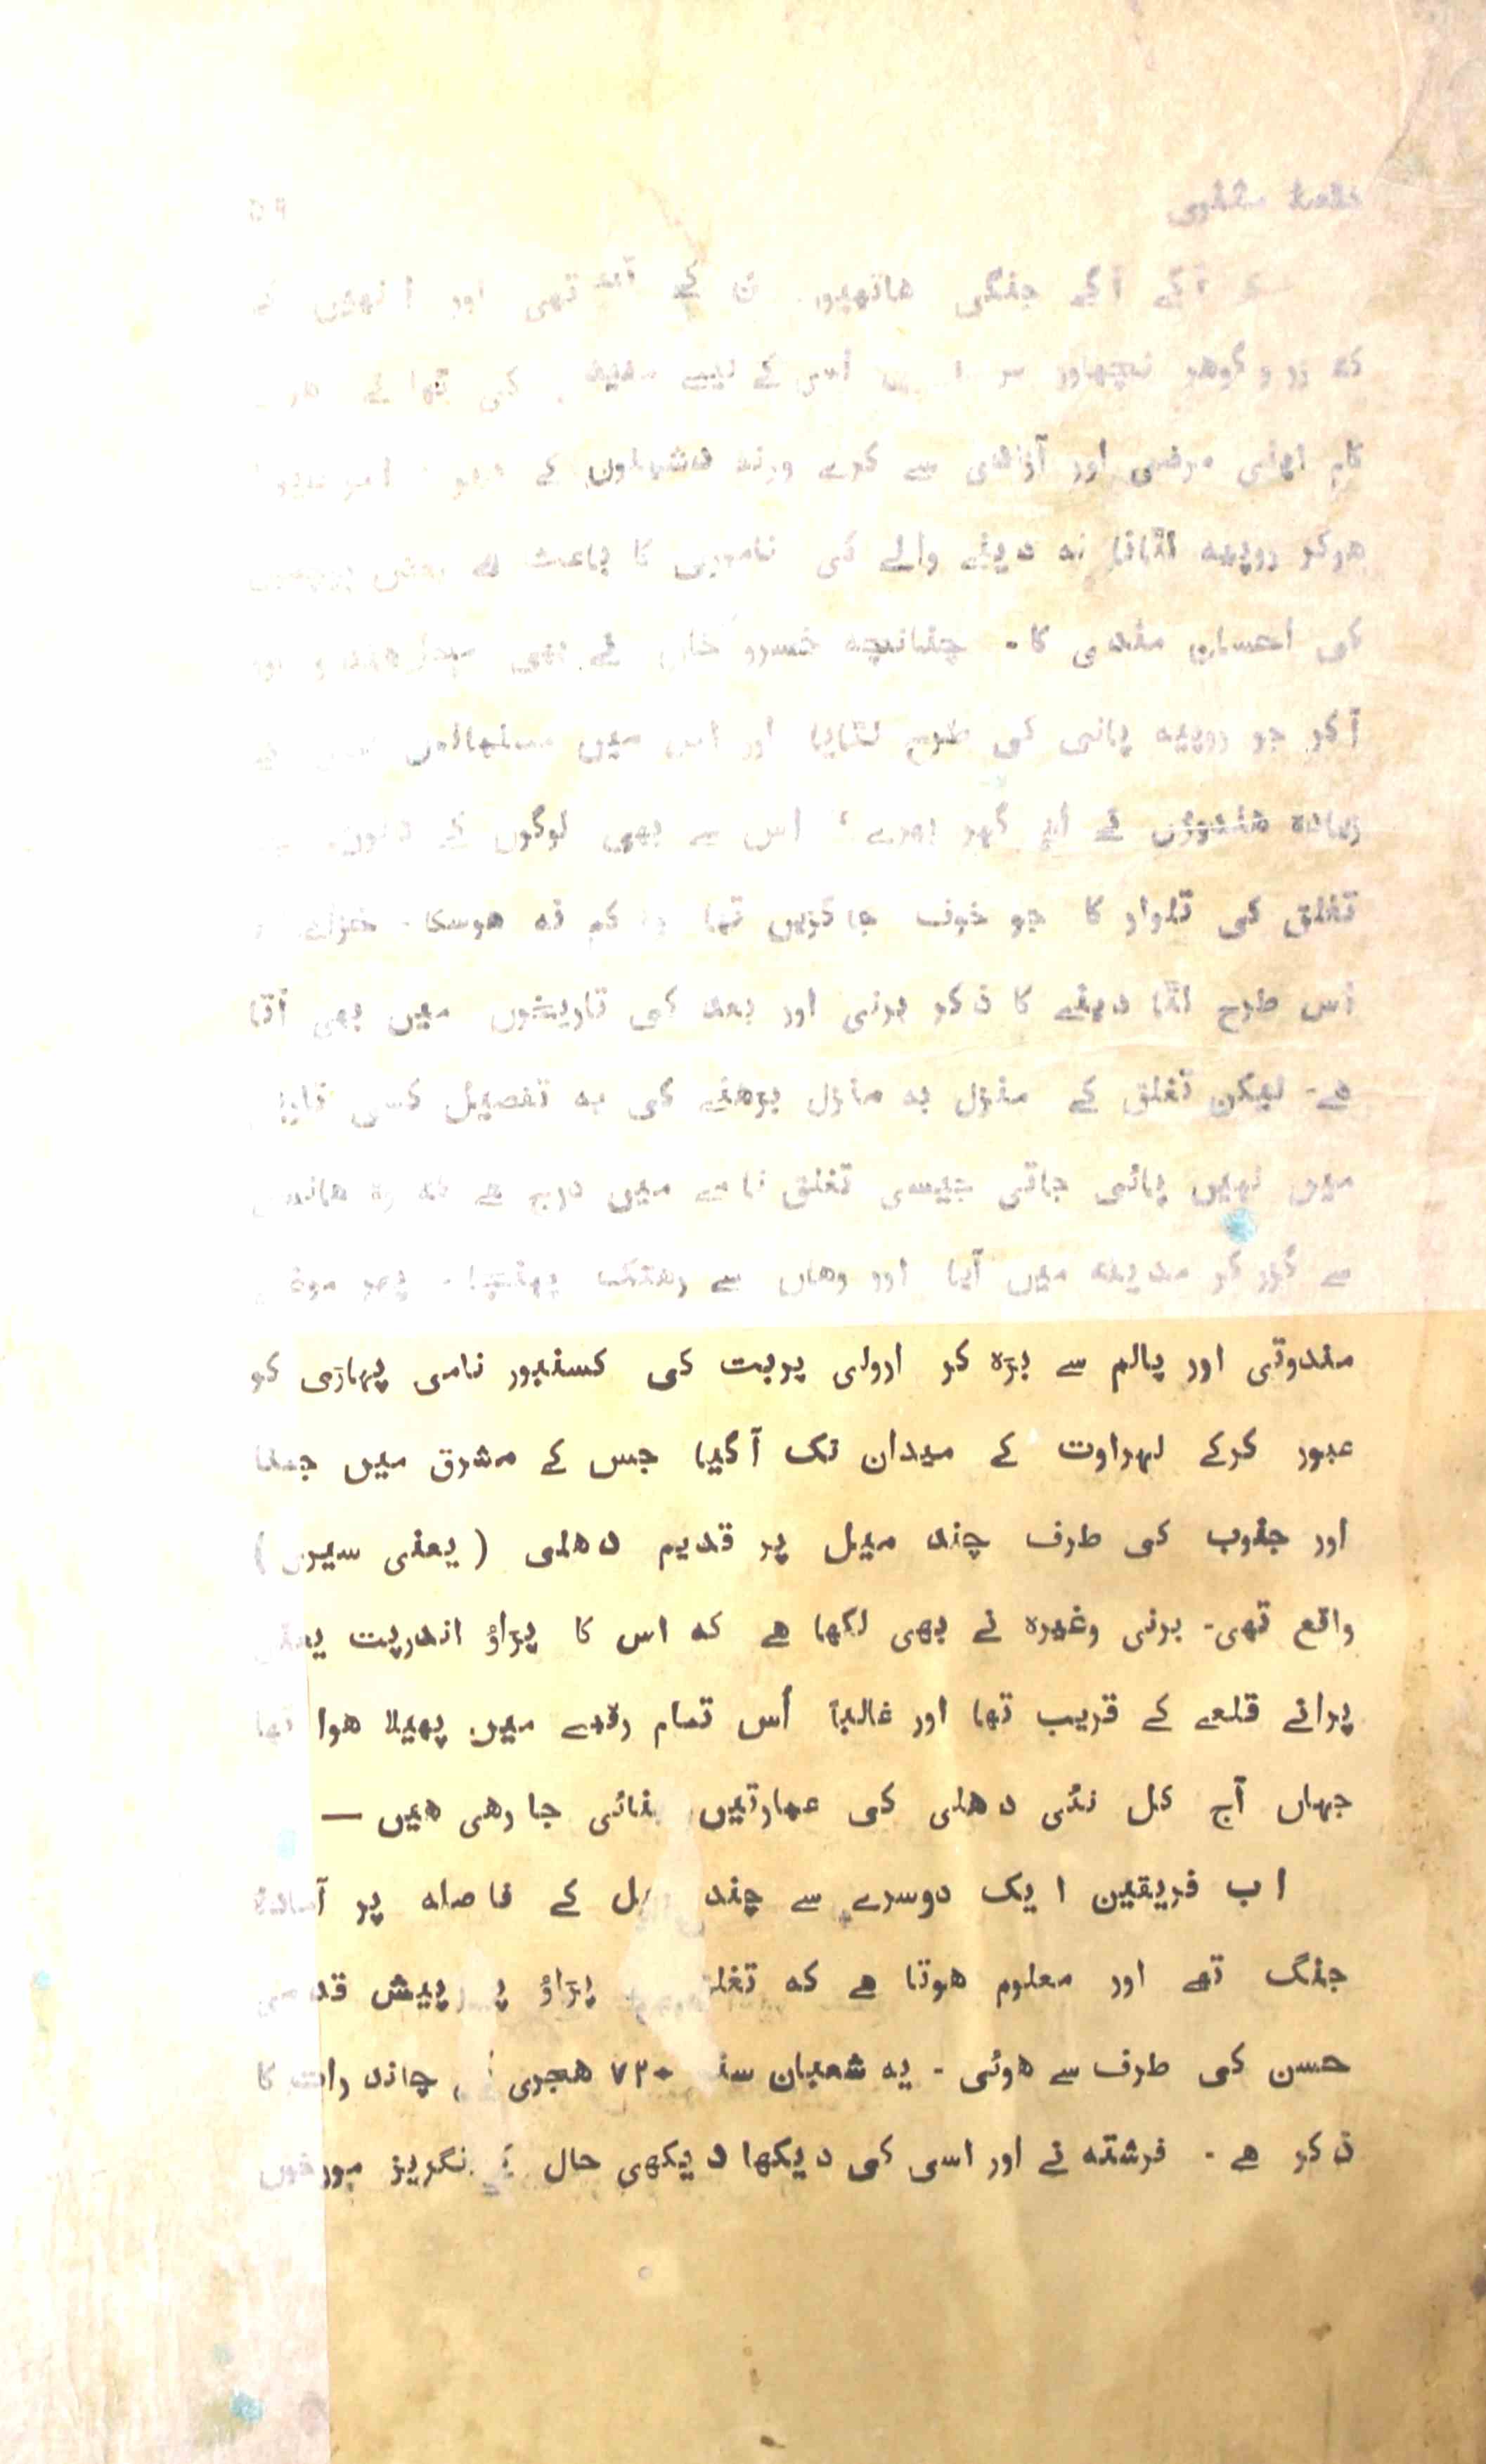 ۵۹
آگے آگے جنگی هاتهیوں کے تهی اور انهیں
که زر و گوهر نچهاور اس کے لیے کی
کام اپنی مرضی اور آزادی سے کرے ورنه دشمنون کے
هوکر روپیه لٹانا نه دینے والے کی ناموری کا باعث هے
کی احسان مندی کا - چنانچه خسرو خاں نے بهی میدان
آ کر جو روپیه پانی کی طرح لٹایا اور اس میں مسلمانوں
زیاده هندوؤں نے اپنے گهر بهرے ' اس سے بهی لوگوں کے دلوں
تغلق کی تلوار کا جو خوف جاگزیں تها وه کم نه هوسکا -
اس طرح لٹا دینے کا ذکر برنی اور بعد کی تاریخوں میں بهی آتا
هے - لیکن تغلق کے منزل به منزل بڑهنے کی یه تفصیل کسی
میں نهیں پائی جاتی جیسی تغلق نامے میں درج هے که وه هانسی
سے گزر کر مدینه میں آیا اور وهاں سے رهتک پهنچا - پهر
مندوتی اور پالم سے بڑه کر ارولی پربت کی کسنپور نامی پہاڑی کو
عبور کرکے لہراوت کے میدان تک آ گیا جس کے مشرق میں جمنا
اور جنوب کی طرف چند میل پر قدیم دهلی ( یعنی سیری )
واقع تهی - برنی وغیره نے بهی لکها هے که اس کا پڑاؤ اندرپت یعنی
پرانے قلعے کے قریب تها اور غالباً اُس تمام رقبے میں پهیلا هوا تها
جہاں آج کل نئی دهلی کی عمارتیں بنائی جا رهی هیں —
اب فریقین ایک دوسرے سے چند میل کے فاصله پر آماده
جنگ تهے اور معلوم هوتا هے که تغلق پڑاؤ پر پیش قدمی
حسن کی طرف سے هوئی - یه شعبان سنه ۷۲۰ هجری کی چاند رات کا
ذکر هے - فرشته نے اور اسی کی دیکها دیکهی حال کے انگریز مورخوں